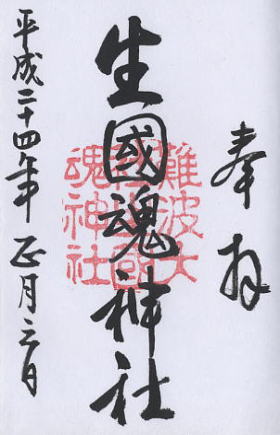 奉拝
生國魂神社
難波大
社生國
魂神社
平成二十四年 正月三日